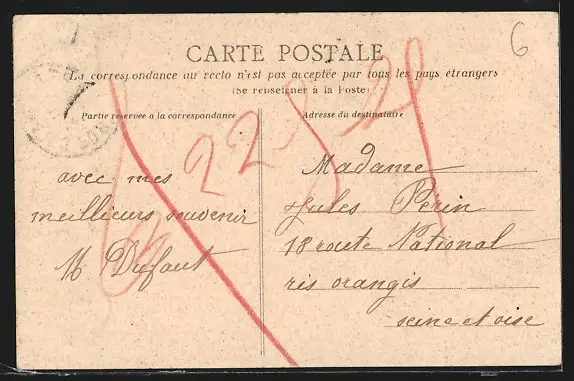 6
CARTE POSTALE
La correspondance au recto n'est pas acceptée par tous les pays étrangers
(Se renseigner à la Poste)
Partie réservée à la correspondance
Adresse du destinataire
avec mes
meilleurs souvenir
M Dufaut
Madame
Jules Périn
18 route National
ris orangis
seine et oise